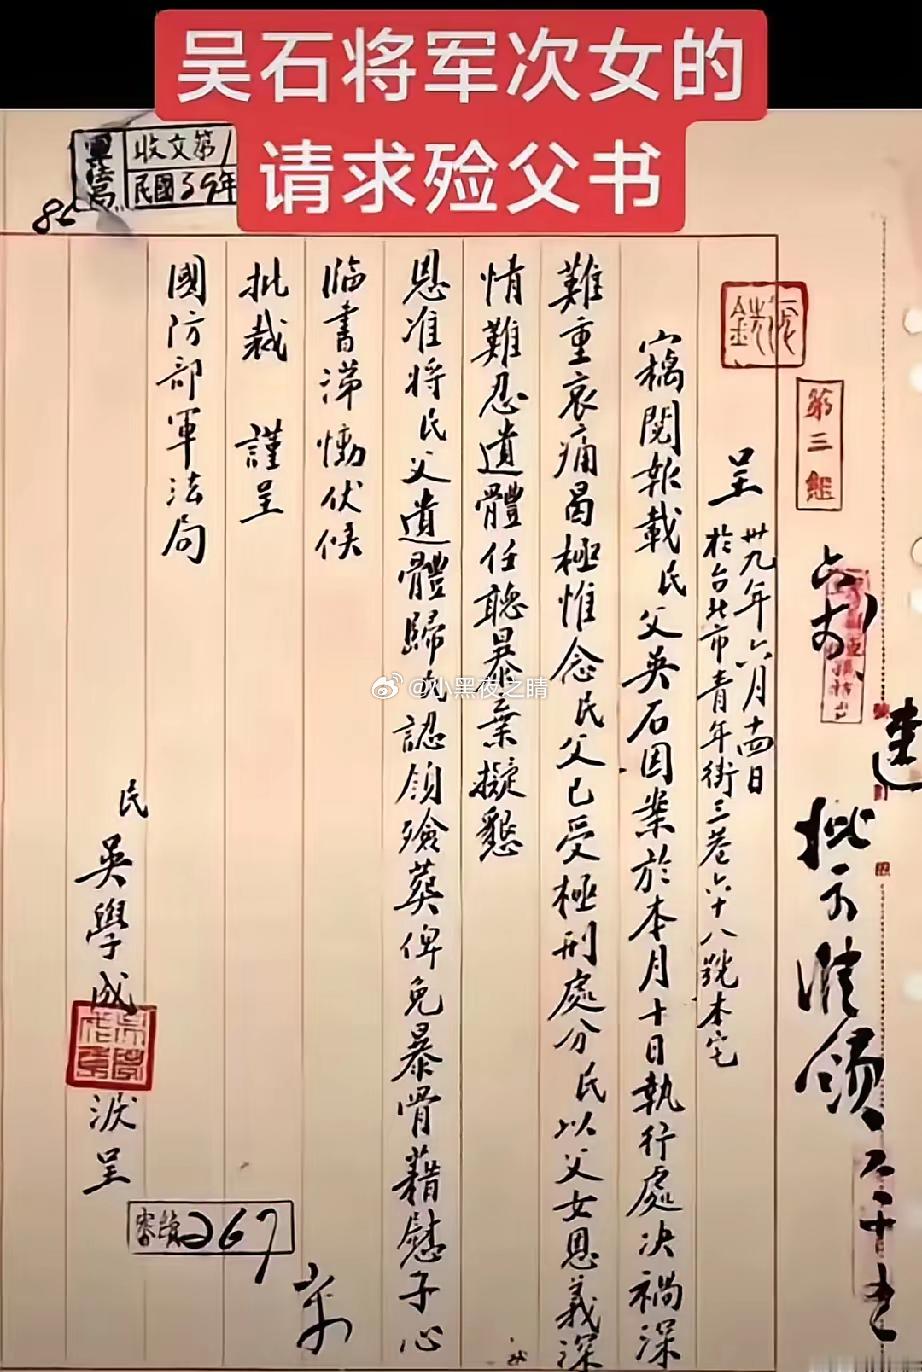 吴石将军次女的
请求殓父书
收文第1
民國39年
86
第三組
呈 卅九年六月十四日
於台北市青年街三巷六十八號本宅
竊閱報載民父吳石因案於本月十日執行處决禍深
難重哀痛曷極惟念民父已受極刑處分民以父女恩義深
情難忍遺體任聽暴棄擬懇
恩准將民父遺體歸民認領殮葬俾免暴骨藉慰子心
臨書涕慟伏候
批裁 謹呈
國防部軍法局
民 吳學成 淚呈
速
批示准領
267
@小黑夜之睛